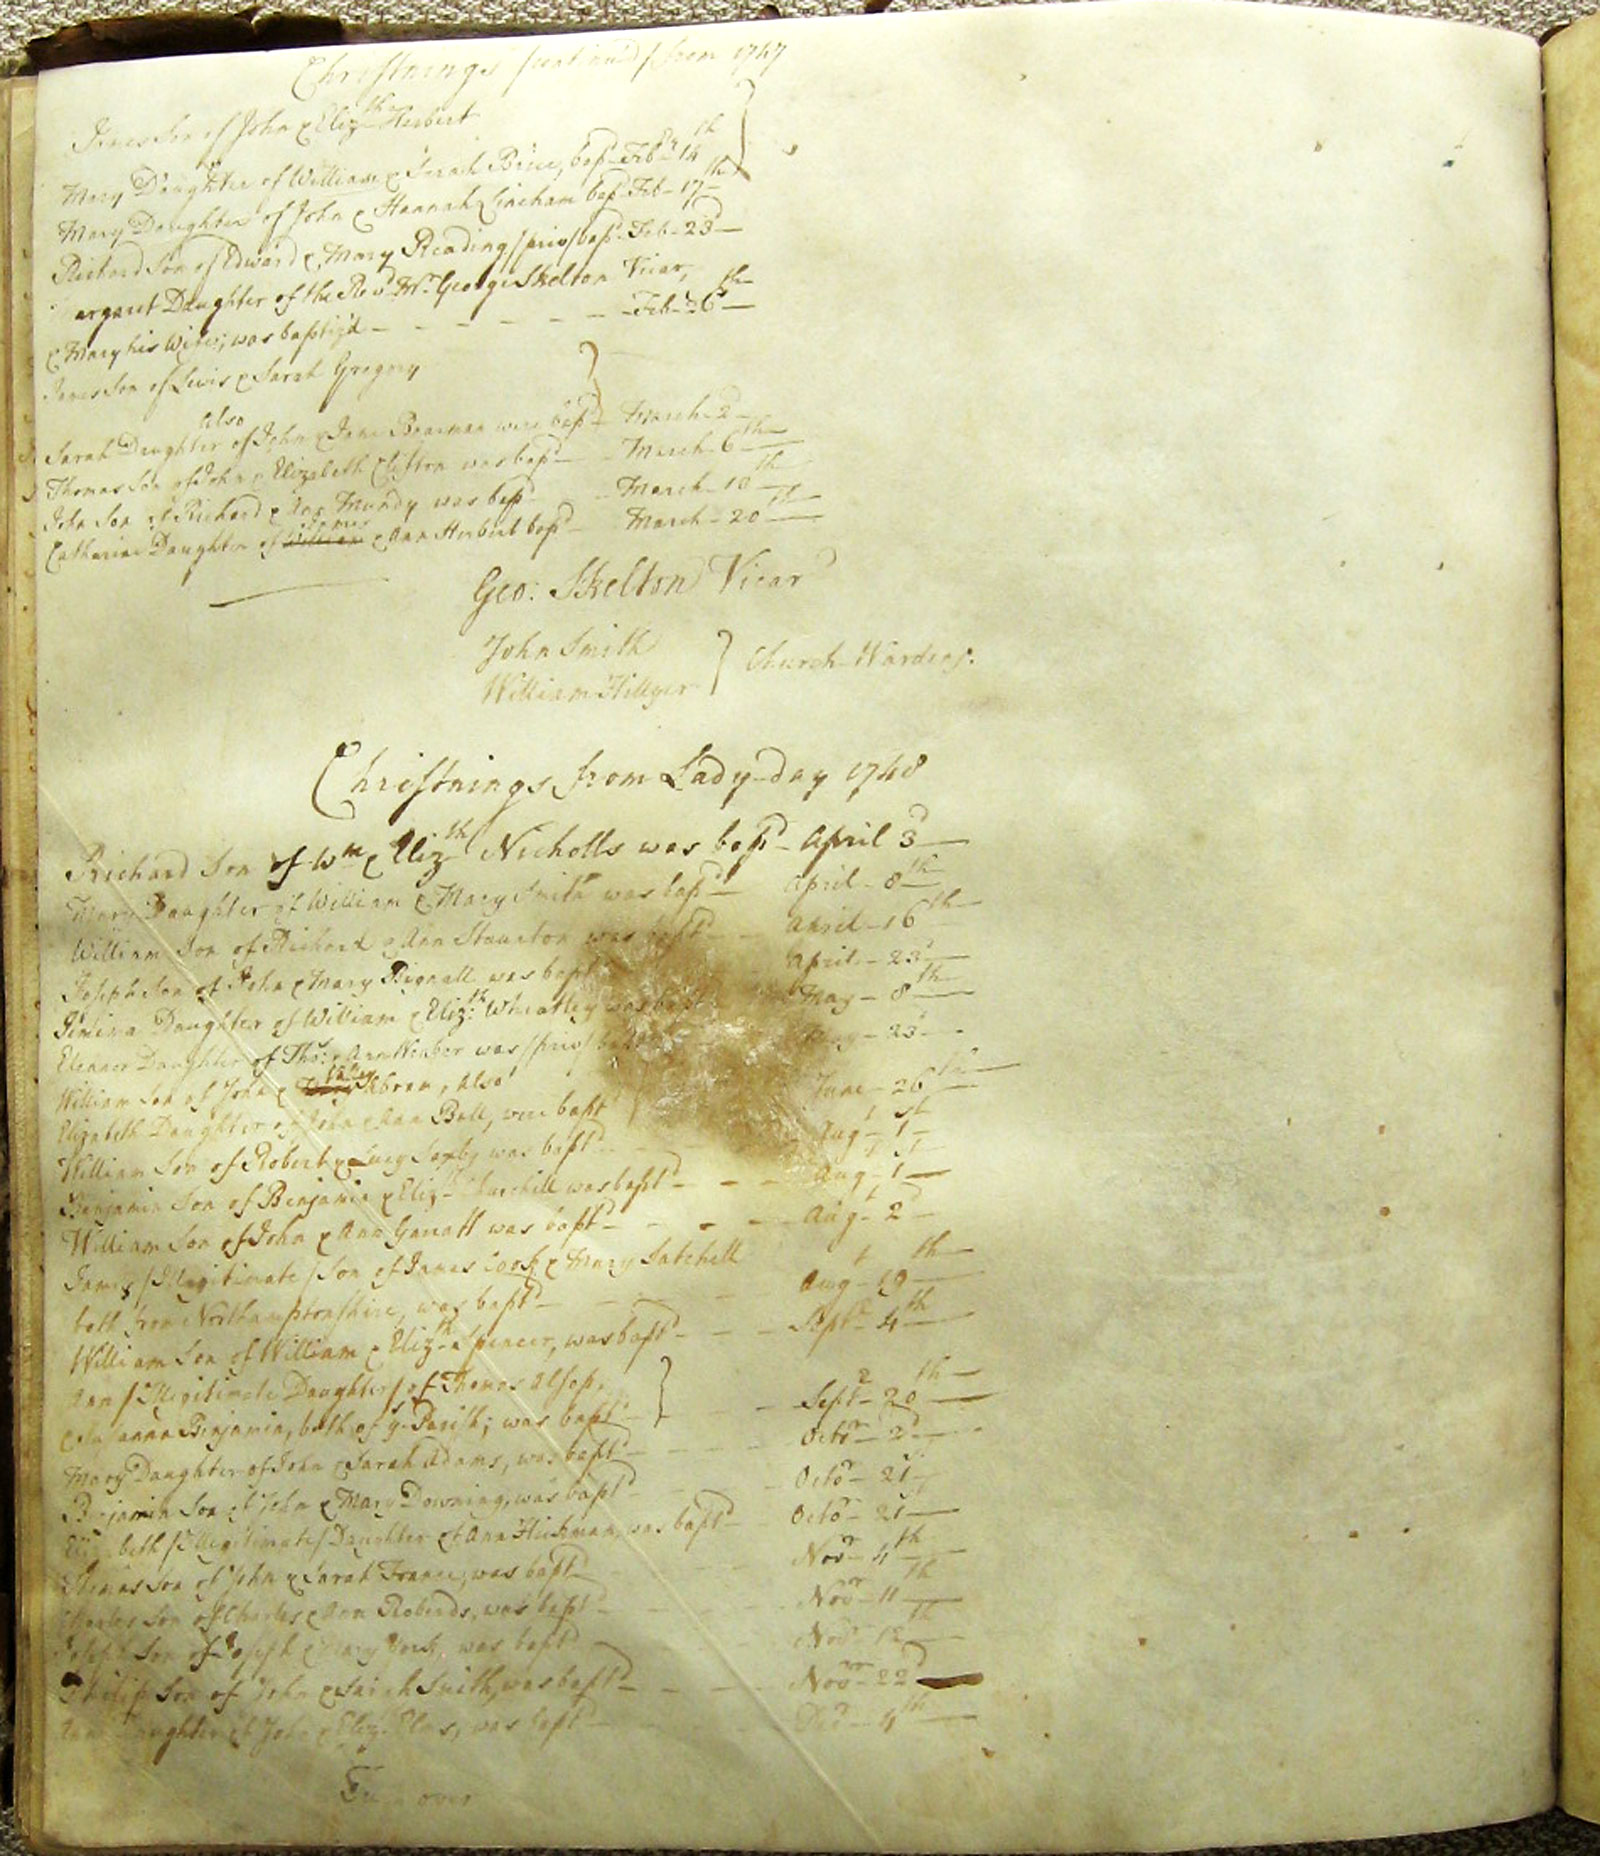 Christnings /continu'd/ from 1747
James Son of John & Eliz:th Herbert
Mary Daughter of William & Sarah Brice, bapd Feb:ry 14th
Mary Daughter of John & Hannah Lineham bapd Feb- 17th
Richard Son of Edward & Mary Reading /priv/ bapd- Feb- 23d
Margaret Daughter of the Revd Mr George Skelton Vicar,
& Mary his Wife; was baptiz'd - - - - - - Feb- 26th
James Son of Lewis & Sarah Gregory
also
Sarah Daughter of John & Jane were bapd March- 2d
Thomas Son of John & Elizabeth Clifton was bapd March- 6th
John Son of Richard & Ann Mundy was bapd March- 10th
Catharine Daughter of William James & Ann Herbert bapd March- 20th
Geo: Skelton Vicar
John Smith
William Hillyer } Church-Wardens.
Christnings from Lady-day 1748
Richard Son of Wm & Elizth Nicholls was bapd- April 3d
Mary Daughter of William & Mary Smith was bapd- April- 8th
William Son of Richard & Ann Staunton was bapt'd April- 16th
Joseph Son of John & Mary Bignall was bapt'd April- 23d
Jemima Daughter of William & Eliz:th Wheatley was bapt'd May- 8th
Eleanor Daughter of Tho:s & Ann was /priv/ bapt'd May- 23d
William Son of John & Abram, also
Elizabeth Daughter of John & Ann Ball, were bapt'd June- 26th
William Son of Robert & Lucy Saxby was bapt'd Augt- 1st
Benjamin Son of Benjamin & Elizth Churchill was bapt'd Augt- 1st
William Son of John & Ann Garratt was bapt'd Augt- 2d
James /Illegitimate/ Son of James Cook & Mary Satchell
both from Northamptonshire, was bapt'd Augt- 19th
William Son of William & Elizth Spencer, was bapt'd Sept- 4th
Ann /Illegitimate Daughter/ of Thomas Alsop,
& Susanna Benjamin, both of ys Parish; was bapt'd Septr- 20th
Mary Daughter of John & Sarah Adams, was bapt'd Octor- 2d
Benjamin Son of John & Mary Downing, was bapt'd Octor- 21st
Elizabeth /Illegitimate/ Daughter of Ann Hickman, was bapt'd Octor- 21
Thomas Son of John & Sarah France, was bapt'd Novr- 4th
Charles Son of Charles & Ann Roberds, was bapt'd Novr- 11th
Joseph Son of Joseph & Mary York, was bapt'd Novr 12th
Philip Son of John & Sarah Smith, was bapt'd Novr- 22d
Ann Daughter of John & Eliz: was bapt'd Decr- 4th
Turn over